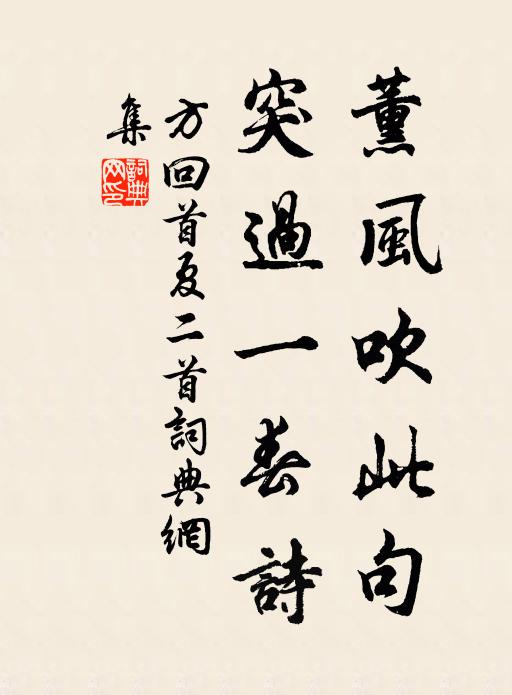 薰風吹此句
突過一春詩
方回首夏二首詞典網
集
詞典網印